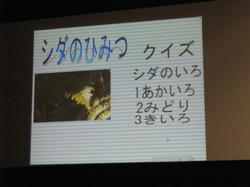 シダのひみつ
クイズ
シダのいろ
1あかいろ
2みどり
3きいろ